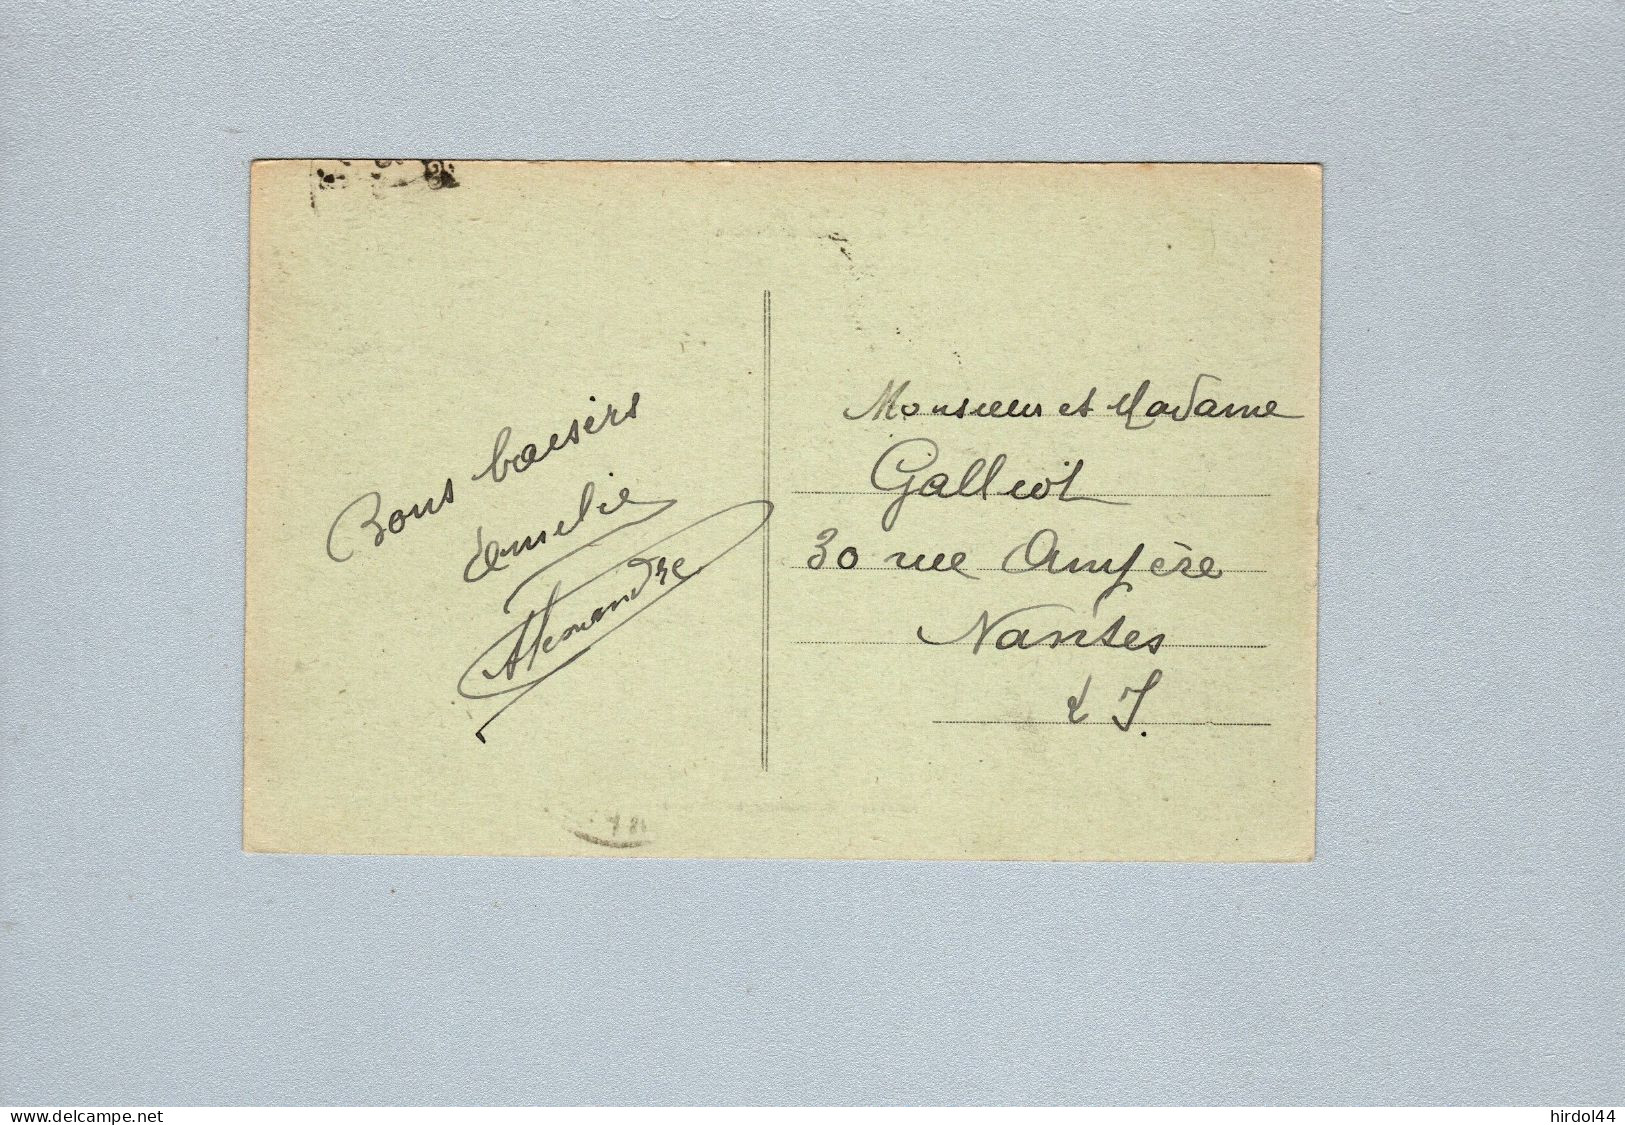 Bons baisers
Amelie
Alexandre
Monsieur et Madame
Galliot
30 rue Ampère
Nantes
L I.
www.delcampe.net
hirdol44